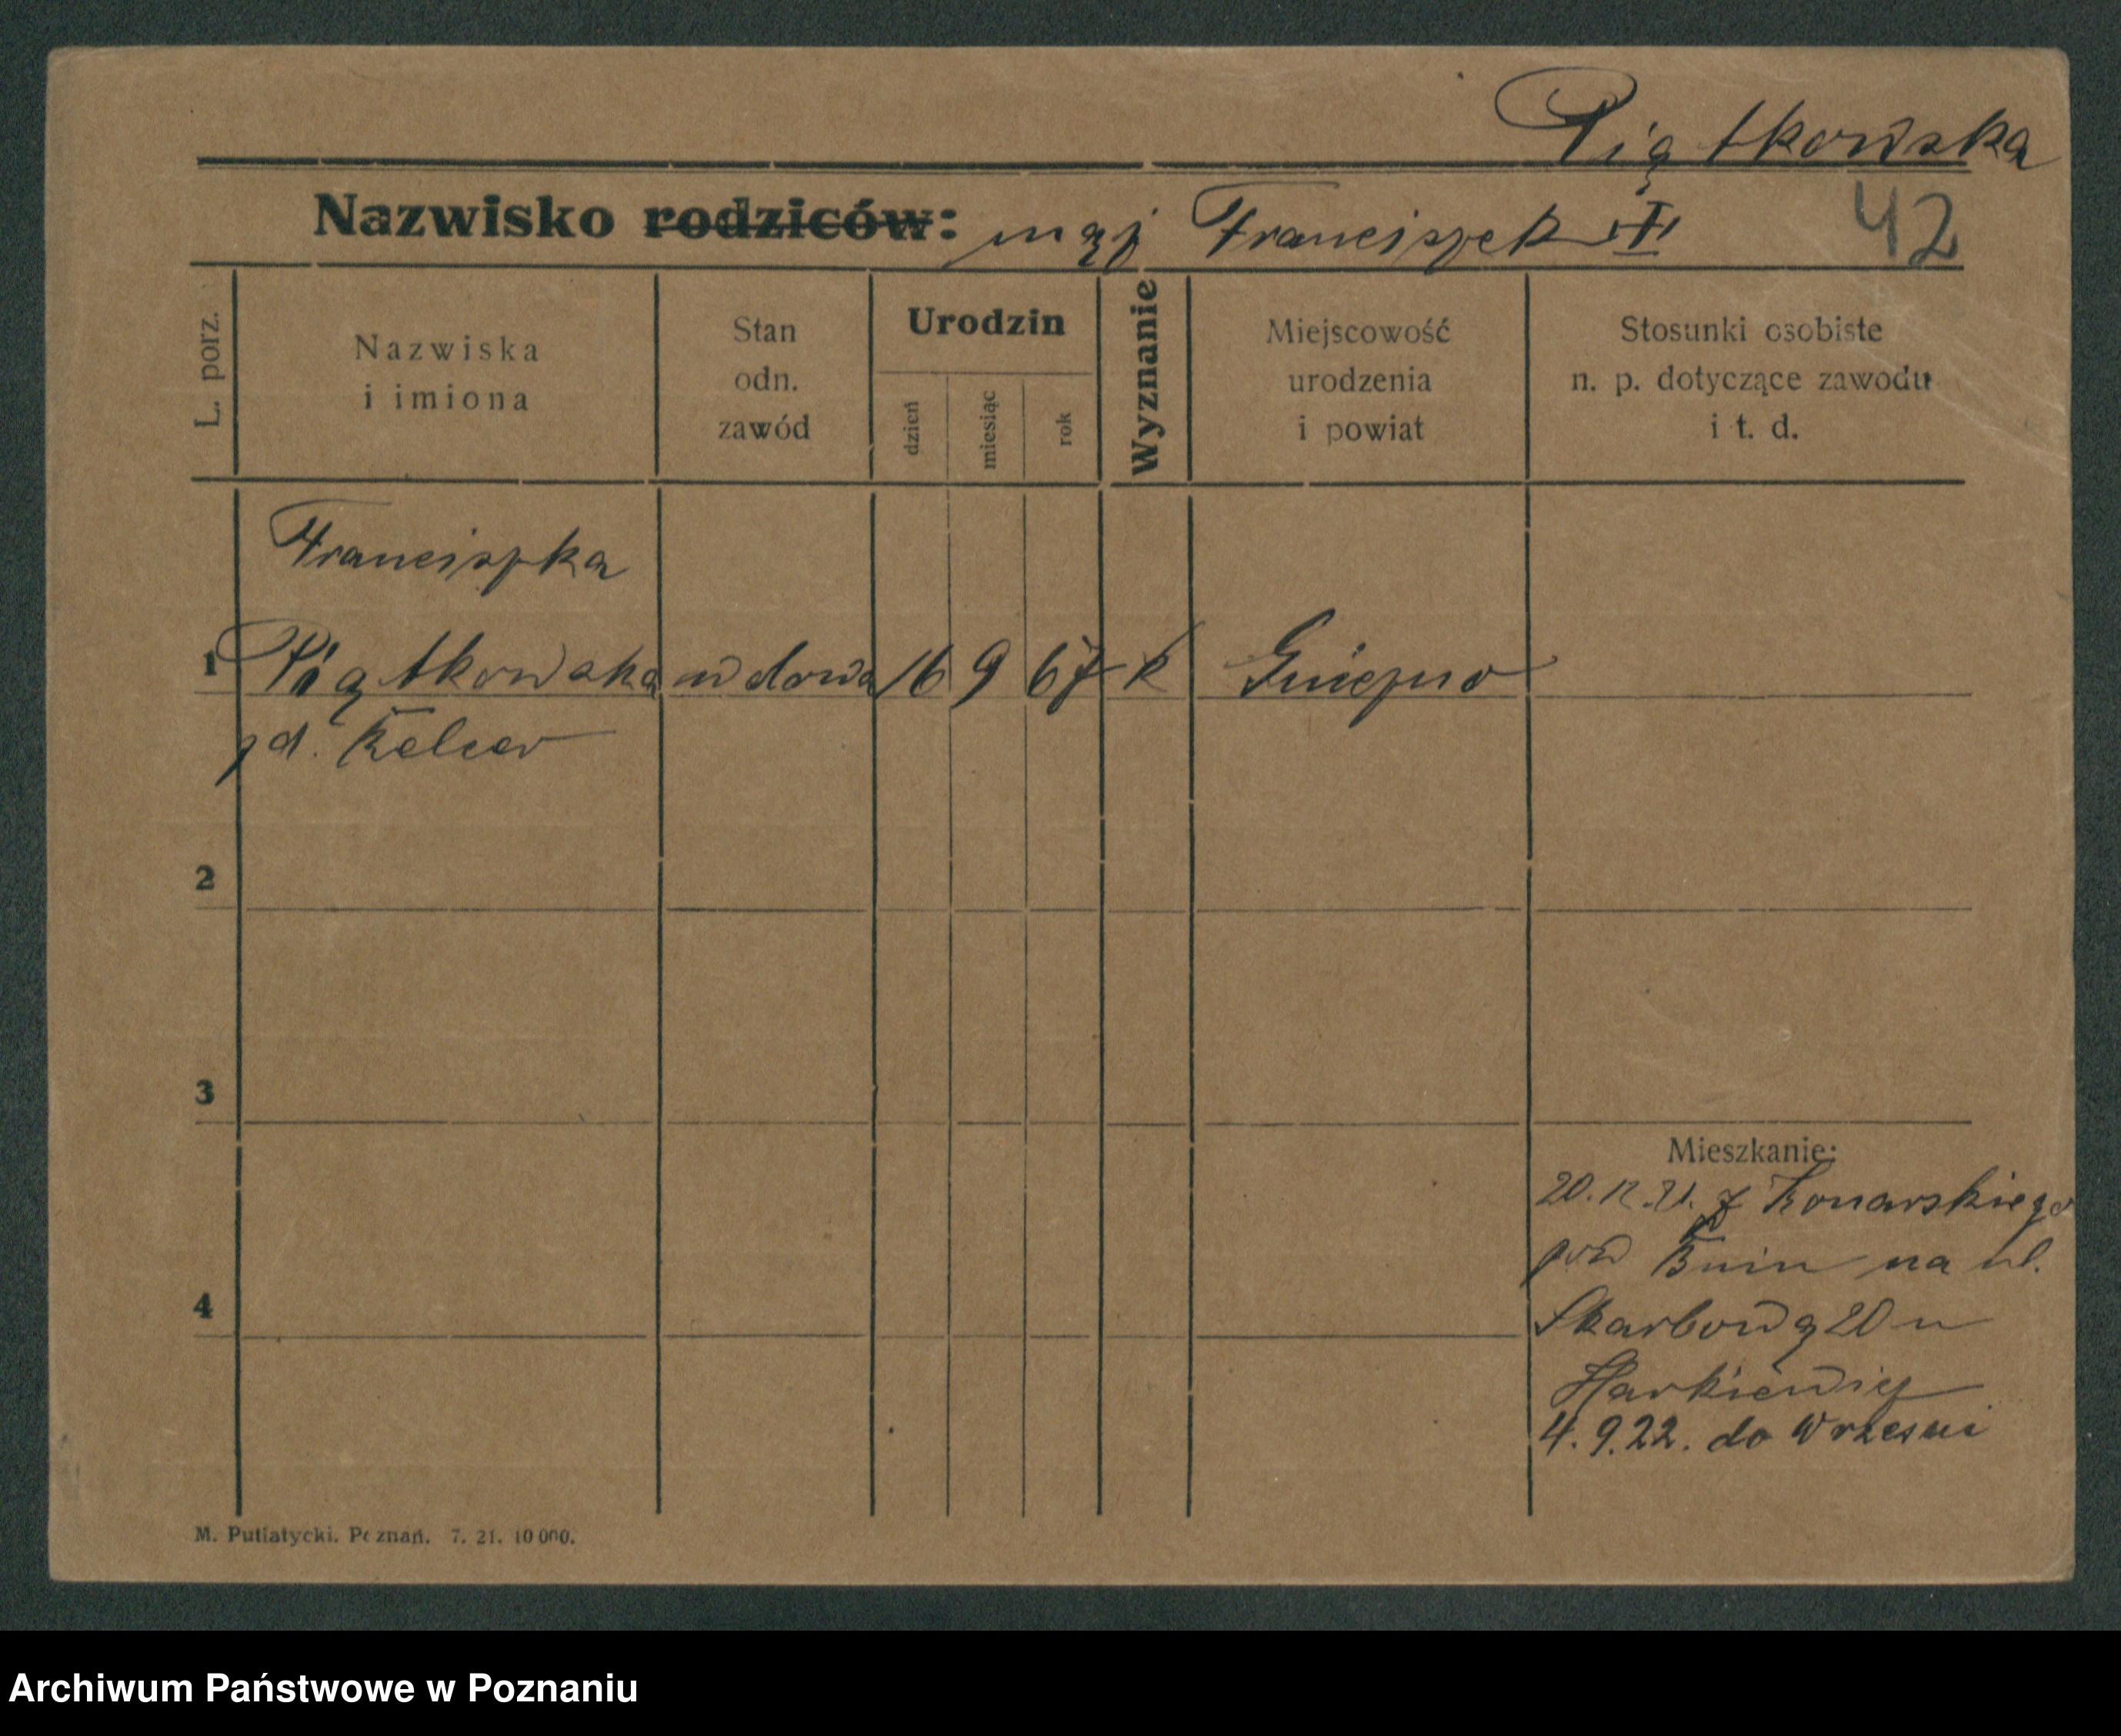 Piątkowska
Nazwisko rodziców: mąż Franciszek †
42
L. porz.
Nazwiska
i imiona
Stan
odn.
zawód
Urodzin
dzień
miesiąc
rok
Wyznanie
Miejscowość
urodzenia
i powiat
Stosunki osobiste
n. p. dotyczące zawodu
i t. d.
Franciszka
1 Piątkowska wdowa 16 9 67 k Gniezno
zd.
2
3
4
Mieszkanie:
20. 12. 21. z Konarskiego
pow na ul.
Skarbową 20 u
4. 9. 22. do Wrzesni
M. Putiatycki. Poznań. 7. 21. 10 000.
Archiwum Państwowe w Poznaniu